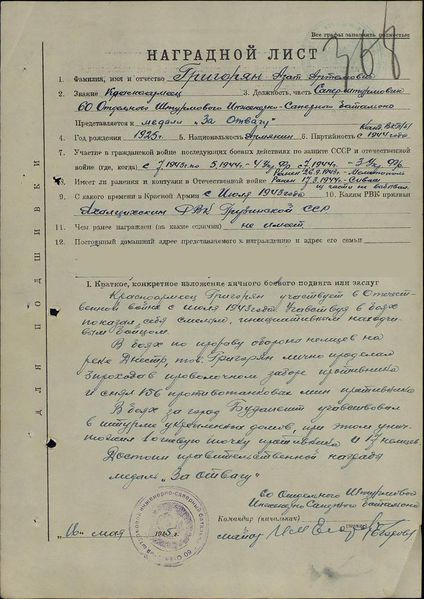 Все графы заполнять полностью
368
НАГРАДНОЙ ЛИСТ
1. Фамилия, имя и отчество Григорян Азат Артемович
2. Звание Красноармеец 3. Должность, часть Сапер штурмовик
60 Отдельного Штурмового Инженерно-Саперного Батальона
Представляется к медали „За Отвагу"
4. Год рождения 1925 5. Национальность Армянин 6. Партийность с 1944 года
7. Участие в гражданской войне последующих боевых действиях по защите СССР и отечественной
войне (где, когда) с 7.1943 г. по 5.1944 - 4 Укр. Фр. с 7.1944 - 3 Укр. Фр.
8. Имеет ли ранения и контузии в Отечественной войне Ранен 17.3.1944 - Сиваш
9. С какого времени в Красной Армии с Июля 1943 года 10. Каким РВК призван
Ахалцихским РВК Грузинской ССР
11. Чем ранее награжден (за какие отличия) не имеет
12. Постоянный домашний адрес представляемого к награждению и адрес его семьи
I. Краткое, конкретное изложение личного боевого подвига или заслуг
Красноармеец Григорян участвует в Отечест-
венной войне с июля 1943 года. Участвуя в боях
показал себя смелым, инициативным находчи-
вым бойцом.
В боях по прорыву обороны немцев на
реке Днестр, тов. Григорян лично проделал
3 прохода в проволочном заборе противника
и снял 156 противотанковых мин противника
В боях за город Будапешт участвовал
в штурме укрепленных домов, при этом унич-
тожил 1 огневую точку противника и немцев.
Достоин правительственной награды
медали „За Отвагу"
60 Отдельного Штурмового
Инженерно Саперного Батальона
Командир (начальник)
майор Егоров
мая 1945 г.
ДЛЯ ПОДШИВКИ